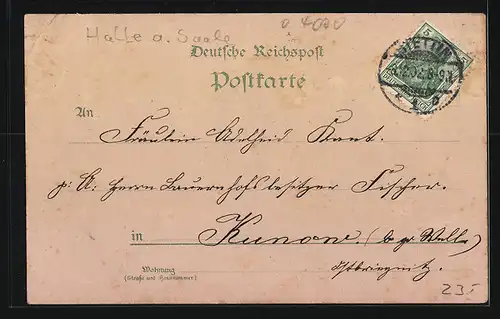 Halle a. Saale
a 4020
Deutsche Reichspost
Postkarte
An
Fräulein Adelheid Kant.
p. A. Herrn Bauernhofsbesitzer Fischer.
in Kunow. (bez. Well
Wohnung
(Straße und Hausnummer)
Ostpriegnitz.
235